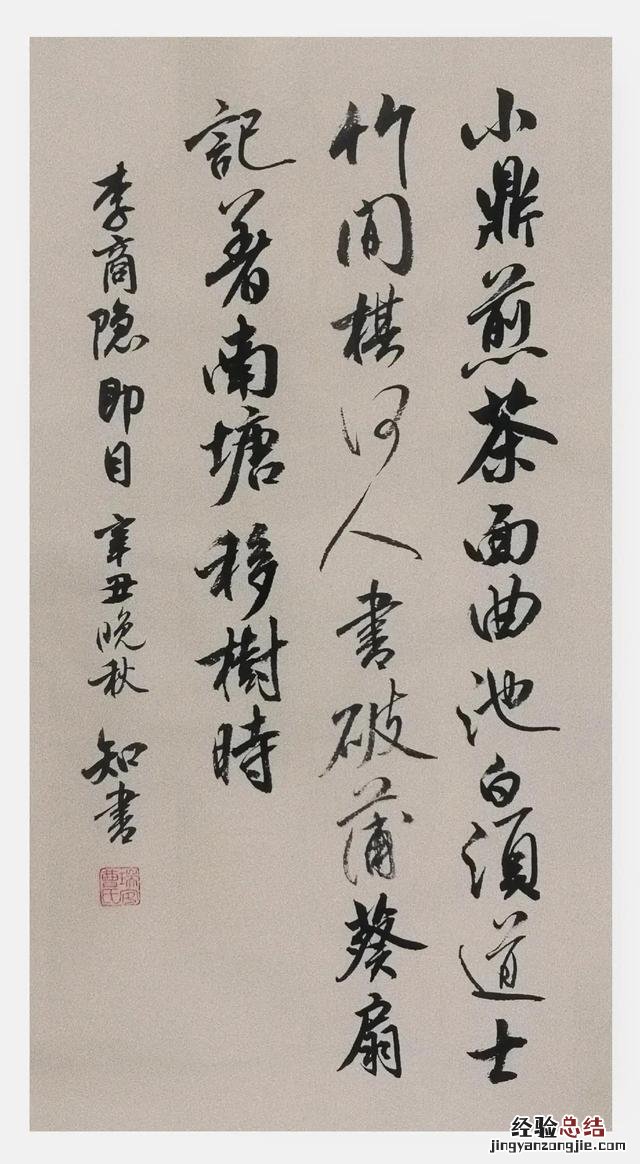 小鼎煎茶面曲池白須道士
竹間棋何人書破蒲葵扇
記著南塘移樹時
李商隐即目辛丑晚秋知書
经验总结
jingyanzongjie.com